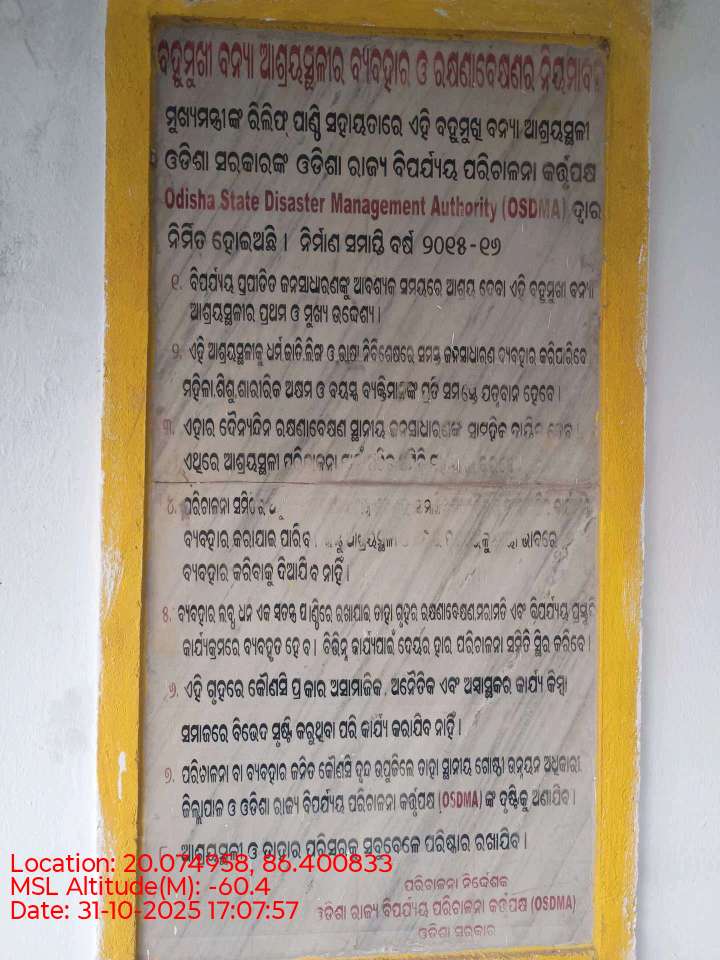 ବହୁମୁଖୀ ବନ୍ୟା ଆଶ୍ରୟସ୍ଥଳୀର ବ୍ୟବହାର ଓ ରକ୍ଷଣାବେକ୍ଷଣର
ମୁଖ୍ୟମନ୍ତ୍ରୀଙ୍କ ରିଲିଫ୍ ପାଣ୍ଠି ସହାୟତାରେ ଏହି ବହୁମୁଖି ବନ୍ୟା ଆଶ୍ରୟସ୍ଥଳୀ
ଓଡିଶା ସରକାରଙ୍କ ଓଡିଶା ରାଜ୍ୟ ବିପର୍ଯ୍ୟୟ ପରିଚାଳନା କର୍ତ୍ତୃପକ୍ଷ
Odisha State Disaster Management Authority (OSDMA) ଦ୍ଵାରା
ନିର୍ମିତ ହୋଇଅଛି । ନିର୍ମାଣ ସମାପ୍ତି ବର୍ଷ ୨୦୧୫-୧୬
୧. ବିପର୍ଯ୍ୟୟ ପ୍ରପୀଡିତ ଜନସାଧାରଣଙ୍କୁ ଆବଶ୍ୟକ ସମୟରେ ଆଶ୍ରୟ ଦେବା ଏହି ବହୁମୁଖୀ ବନ୍ୟା
ଆଶ୍ରୟସ୍ଥଳୀର ପ୍ରଥମ ଓ ମୁଖ୍ୟ ଉଦ୍ଦେଶ୍ୟ ।
୨. ଏହି ଆଶ୍ରୟସ୍ଥଳୀକୁ ଧର୍ମ,ଜାତି,ଲିଙ୍ଗ ଓ ଭାଷା ନିର୍ବିଶେଷରେ ସମସ୍ତ ଜନସାଧାରଣ ବ୍ୟବହାର କରିପାରିବେ
ମହିଳା,ଶିଶୁ,ଶାରୀରିକ ଅକ୍ଷମ ଓ ବୟସ୍କ ବ୍ୟକ୍ତିମାନଙ୍କ ପ୍ରତି ସମସ୍ତେ ଯତ୍ନବାନ ହେବେ ।
୩. ଏହାର ଦୈନ୍ୟନ୍ଦିନ ରକ୍ଷଣାବେକ୍ଷଣ ସ୍ଥାନୀୟ ଜନସାଧାରଣଙ୍କ
ଏଥିରେ ଆଶ୍ରୟସ୍ଥଳୀ ପରିଚାଳନା
୪. ପରିଚାଳନା
ବ୍ୟବହାର କରାଯାଇ ପାରିବ । ଆଶ୍ରୟସ୍ଥଳୀ
ବ୍ୟବହାର କରିବାକୁ ଦିଆଯିବ ନାହିଁ ।
୫. ବ୍ୟବହାର ଲବ୍ଧ ଧନ ଏକ ସ୍ଵତନ୍ତ୍ର ପାଣ୍ଠିରେ ରଖାଯାଇ ତାହା ଗୃହର ରକ୍ଷଣାବେକ୍ଷଣ,ମରାମତି ଏବଂ ବିପର୍ଯ୍ୟୟ ପ୍ରସ୍ତୁତି
କାର୍ଯ୍ୟକ୍ରମରେ ବ୍ୟବହୃତ ହେବ । ବିଭିନ୍ନ କାର୍ଯ୍ୟପାଇଁ ଦେୟର ହାର ପରିଚାଳନା ସମିତି ସ୍ଥିର କରିବେ ।
୬. ଏହି ଗୃହରେ କୌଣସି ପ୍ରକାର ଅସାମାଜିକ, ଅନୈତିକ ଏବଂ ଅସ୍ଵାସ୍ଥ୍ୟକର କାର୍ଯ୍ୟ କିମ୍ବା
ସମାଜରେ ବିଭେଦ ସୃଷ୍ଟି କରୁଥିବା ପରି କାର୍ଯ୍ୟ କରାଯିବ ନାହିଁ ।
୭. ପରିଚାଳନା ବା ବ୍ୟବହାର ଜନିତ କୌଣସି ଦ୍ଵନ୍ଦ ଉପୁଜିଲେ ତାହା ସ୍ଥାନୀୟ ଗୋଷ୍ଠୀ ଉନ୍ନୟନ ଅଧିକାରୀ,
ଜିଲ୍ଲାପାଳ ଓ ଓଡିଶା ରାଜ୍ୟ ବିପର୍ଯ୍ୟୟ ପରିଚାଳନା କର୍ତ୍ତୃପକ୍ଷ (OSDMA) ଙ୍କ ଦୃଷ୍ଟିକୁ ଅଣାଯିବ ।
୮. ଆଶ୍ରୟସ୍ଥଳୀ ଓ ତାହାର ପରିସରକୁ ସବୁବେଳେ ପରିଷ୍କାର ରଖାଯିବ ।
ପରିଚାଳନା ନିର୍ଦ୍ଦେଶକ
ଓଡିଶା ରାଜ୍ୟ ବିପର୍ଯ୍ୟୟ ପରିଚାଳନା କର୍ତ୍ତୃପକ୍ଷ (OSDMA)
ଓଡିଶା ସରକାର
Location: 20.074958, 86.400833
MSL Altitude(M): -60.4
Date: 31-10-2025 17:07:57